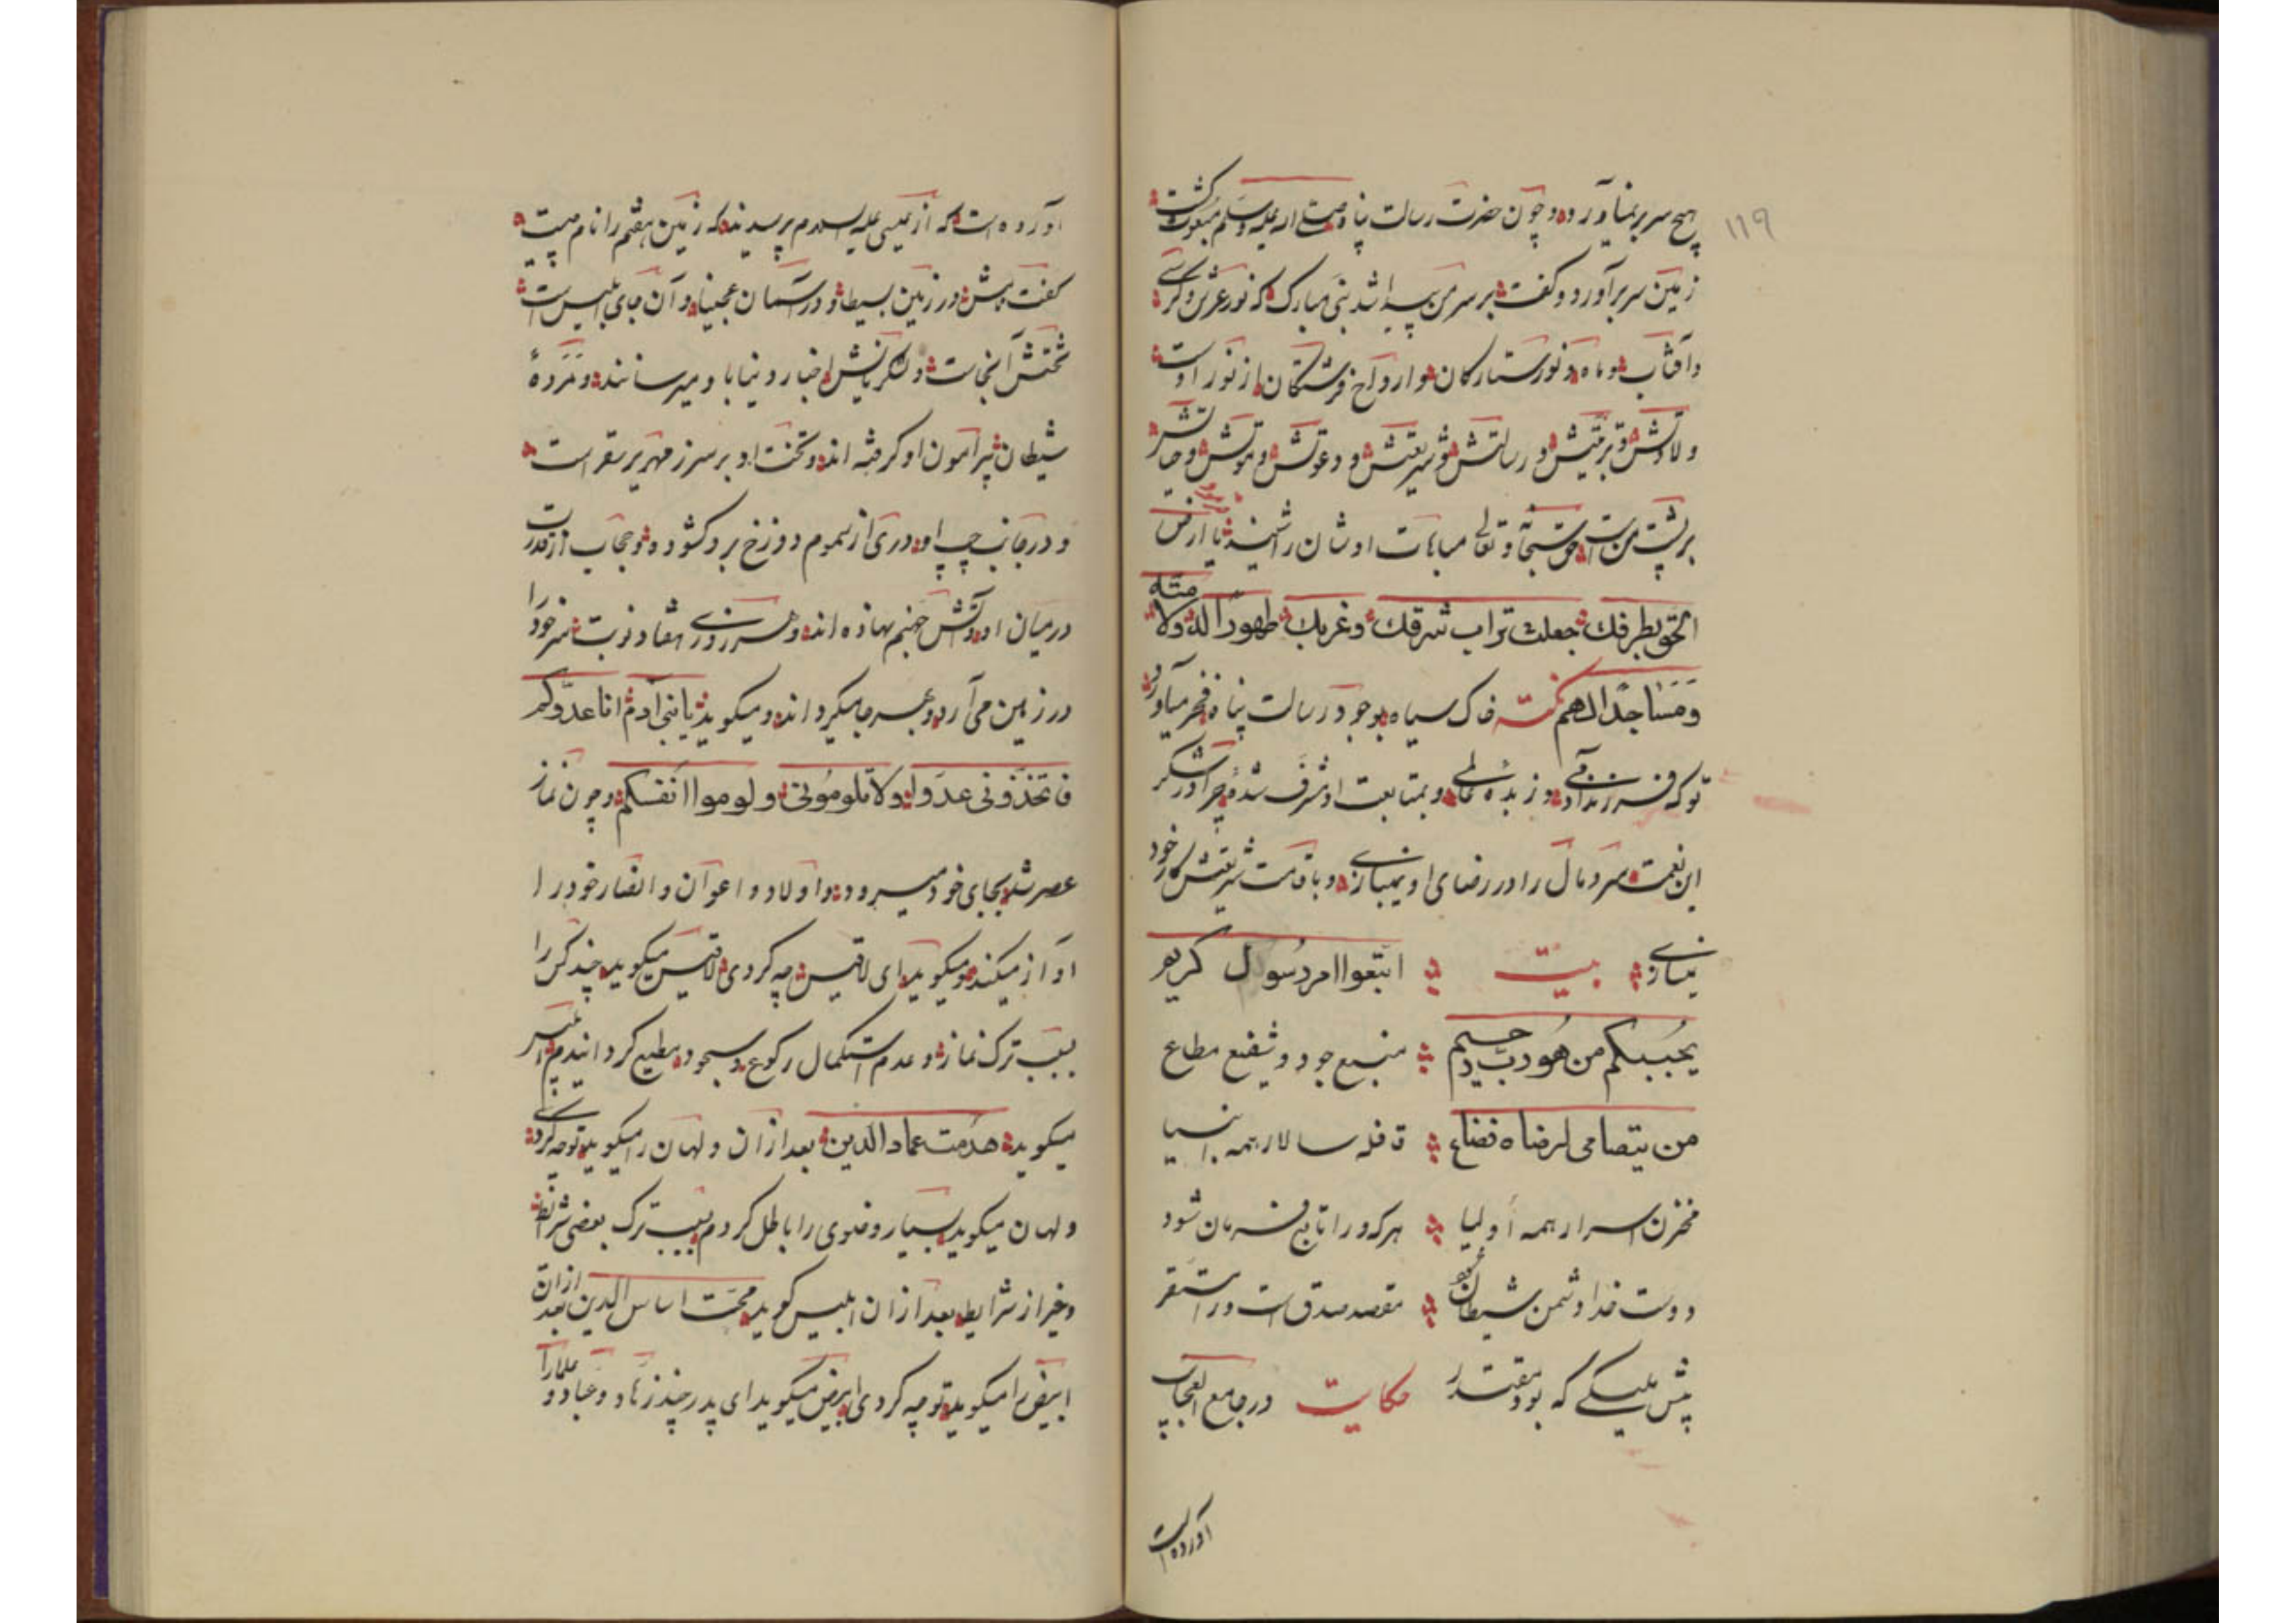 ۱۱۹
هیچ سر بر نمیآورد و چون حضرت رسالت پناه صلی الله علیه وسلم مبعوث گشت
زمین سر برآورد و گفت بر سر من پیدا شد نبی مبارک که نور عرش و کرسی
و آفتاب و ماه و نور ستارکان و ارواح فرشتکان از نور اوست
ولادتش و تربیتش و رسالتش و شریعتش و دعوتش و موتش و حشرش
بر پشت من است حق سبحانه و تعالی مباهات اوشان را شنید یا ارض
بطرفک جعلت تراب شرقک وغربک طهورا له ولامته
ومساجدا لهم نکته خاک سیاه بوجود رسالت پناه فخر میآورد
تو که فرزند آدمی و زبده عالمی و بمتابعت او شرف شدهٔ چرا در شکر
این نعمت سر و مال را در رضای او نمیبازی و باقامت شریعتش کار خود
نمیسازی بیت اتبعوا امر رسول کریم
یحببکم من هو رب رحیم منبع جود و شفیع مطاع
من یتصامی لرضاه فضاع قافله سالار همه انبیا
مخزن اسرار همه اولیا هر که ورا تابع فرمان شود
دوست خدا دشمن شیطان شود مقعد صدق است ورا مستقر
پیش ملیکی که بود مقتدر حکایت در جامع العجایب
آورده است
آورده است که از عیسی علیه السلام پرسیدند که زمین هفتم را نام چیست
گفت در زمین بسیط و در آسمان عجیبا و آن جای ابلیس است
تختش آنجاست و لشکریانش اخبار دنیا باو میرسانند و مردهٔ
شیطان پیرامون او گرفته اند و تخت او بر سر زمهریر سقر است
و در جانب چپ او دری از سموم دوزخ برو کشوده و حجاب از قدرت
در میان او و آتش جهنم نهاده اند و هر روزی هفتاد نوبت سر خود را
در زمین می آرد و بهر جا میگرداند و میگوید یا بنی آدم انا عدوکم
فاتخذونی عدوا ولا تلومونی ولوموا انفسکم و چون نماز
عصر شد بجای خود میرود و اولاد و اعوان و انصار خود را
آواز میکند و میگوید ای لاقیس چه کردی لاقیس میگوید چند کس را
بسبب ترک نماز و عدم استکمال رکوع و سجود مطیع گردانیدم ابلیس
میگوید هدمت عماد الدین بعد از آن ولهان را میگوید تو چه کردی
ولهان میگوید بسیار وضوی را باطل کردم بسبب ترک بعضی شرائط
و غیر از شرایط بعد از آن ابلیس گوید اساس الدین بعد ازان
ابیض را میگوید تو چه کردی ابیض میگوید ای پدر چند زهاد و عباد و علما را